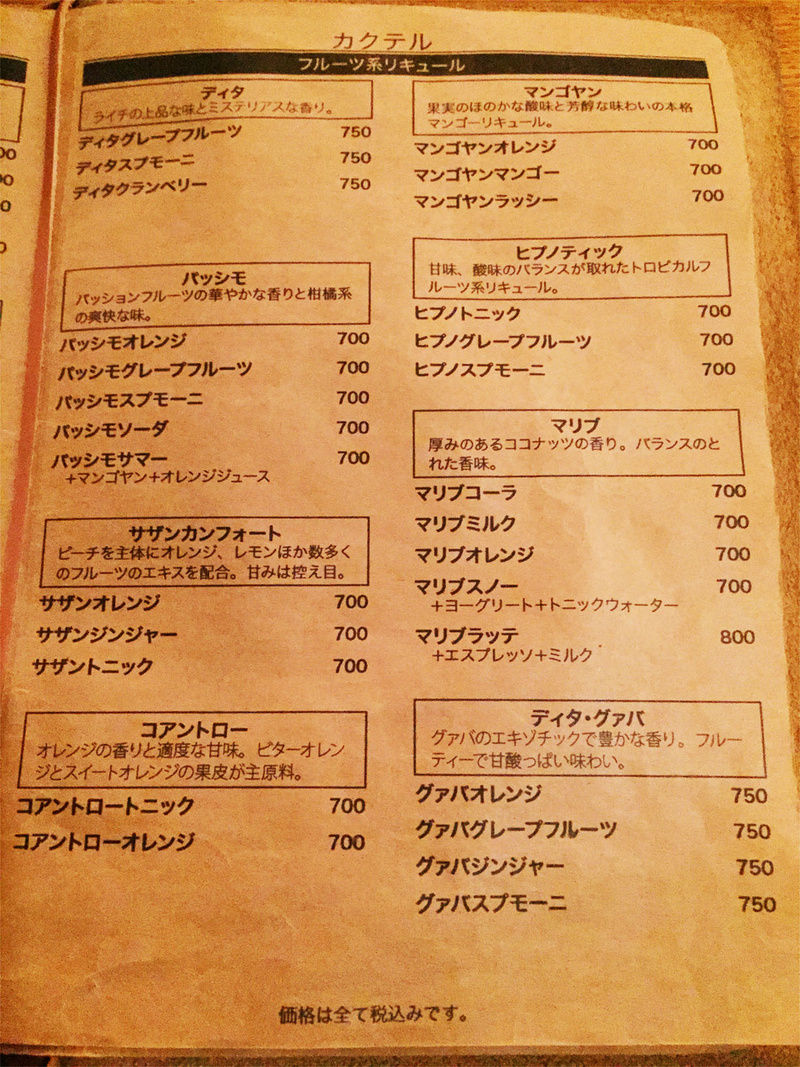 カクテル
フルーツ系リキュール
ディタ
ライチの上品な味とミステリアスな香り。
ディタグレープフルーツ 750
ディタスプモーニ 750
ディタクランベリー 750
パッシモ
パッションフルーツの華やかな香りと柑橘系
の爽快な味。
パッシモオレンジ 700
パッシモグレープフルーツ 700
パッシモスプモーニ 700
パッシモソーダ 700
パッシモサマー 700
+マンゴヤン+オレンジジュース
サザンカンフォート
ピーチを主体にオレンジ、レモンほか数多く
のフルーツのエキスを配合。甘みは控え目。
サザンオレンジ 700
サザンジンジャー 700
サザントニック 700
コアントロー
オレンジの香りと適度な甘味。ビターオレン
ジとスイートオレンジの果皮が主原料。
コアントロートニック 700
コアントローオレンジ 700
マンゴヤン
果実のほのかな酸味と芳醇な味わいの本格
マンゴーリキュール。
マンゴヤンオレンジ 700
マンゴヤンマンゴー 700
マンゴヤンラッシー 700
ヒプノティック
甘味、酸味のバランスが取れたトロピカルフ
ルーツ系リキュール。
ヒプノトニック 700
ヒプノグレープフルーツ 700
ヒプノスプモーニ 700
マリブ
厚みのあるココナッツの香り。バランスのと
れた香味。
マリブコーラ 700
マリブミルク 700
マリブオレンジ 700
マリブスノー 700
+ヨーグリート+トニックウォーター
マリブラッテ 800
+エスプレッソ+ミルク
ディタ・グァバ
グァバのエキゾチックで豊かな香り。フルー
ティーで甘酸っぱい味わい。
グァバオレンジ 750
グァバグレープフルーツ 750
グァバジンジャー 750
グァバスプモーニ 750
価格は全て税込みです。